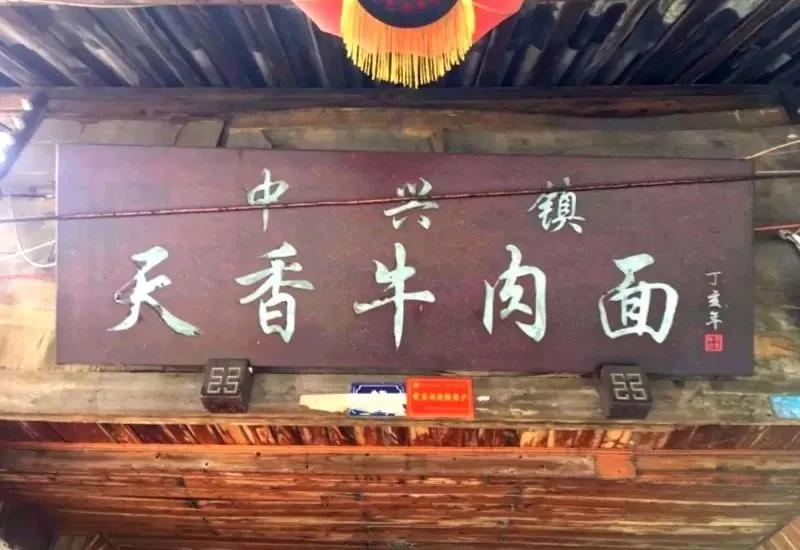 中兴镇
天香牛肉面
丁亥年